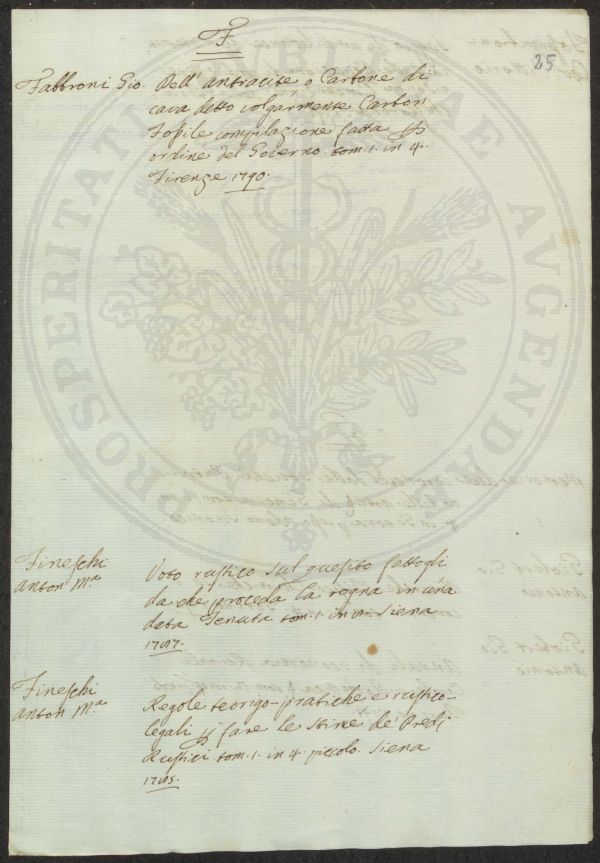 F
25
Fabbroni Gio. Dell' antracite o Carbone di
cava detto volgarmente Carbon
Fossile compilazione fatta
ordine del Governo tom. 1. in 4.
Firenze 1790.
Fineschi
Anton Mª
Voto rustico sul quesito fattogli
da che proceda la rogna in una
data Tenuta tom. 1. in Siena
Fineschi
Anton Mª
Regole teorigo-pratiche e rustico-
legali fare le stime de' Predj
Rustici tom. 1. in 4. piccolo Siena
PROSPERITATI PUBLICAE AVGENDAE